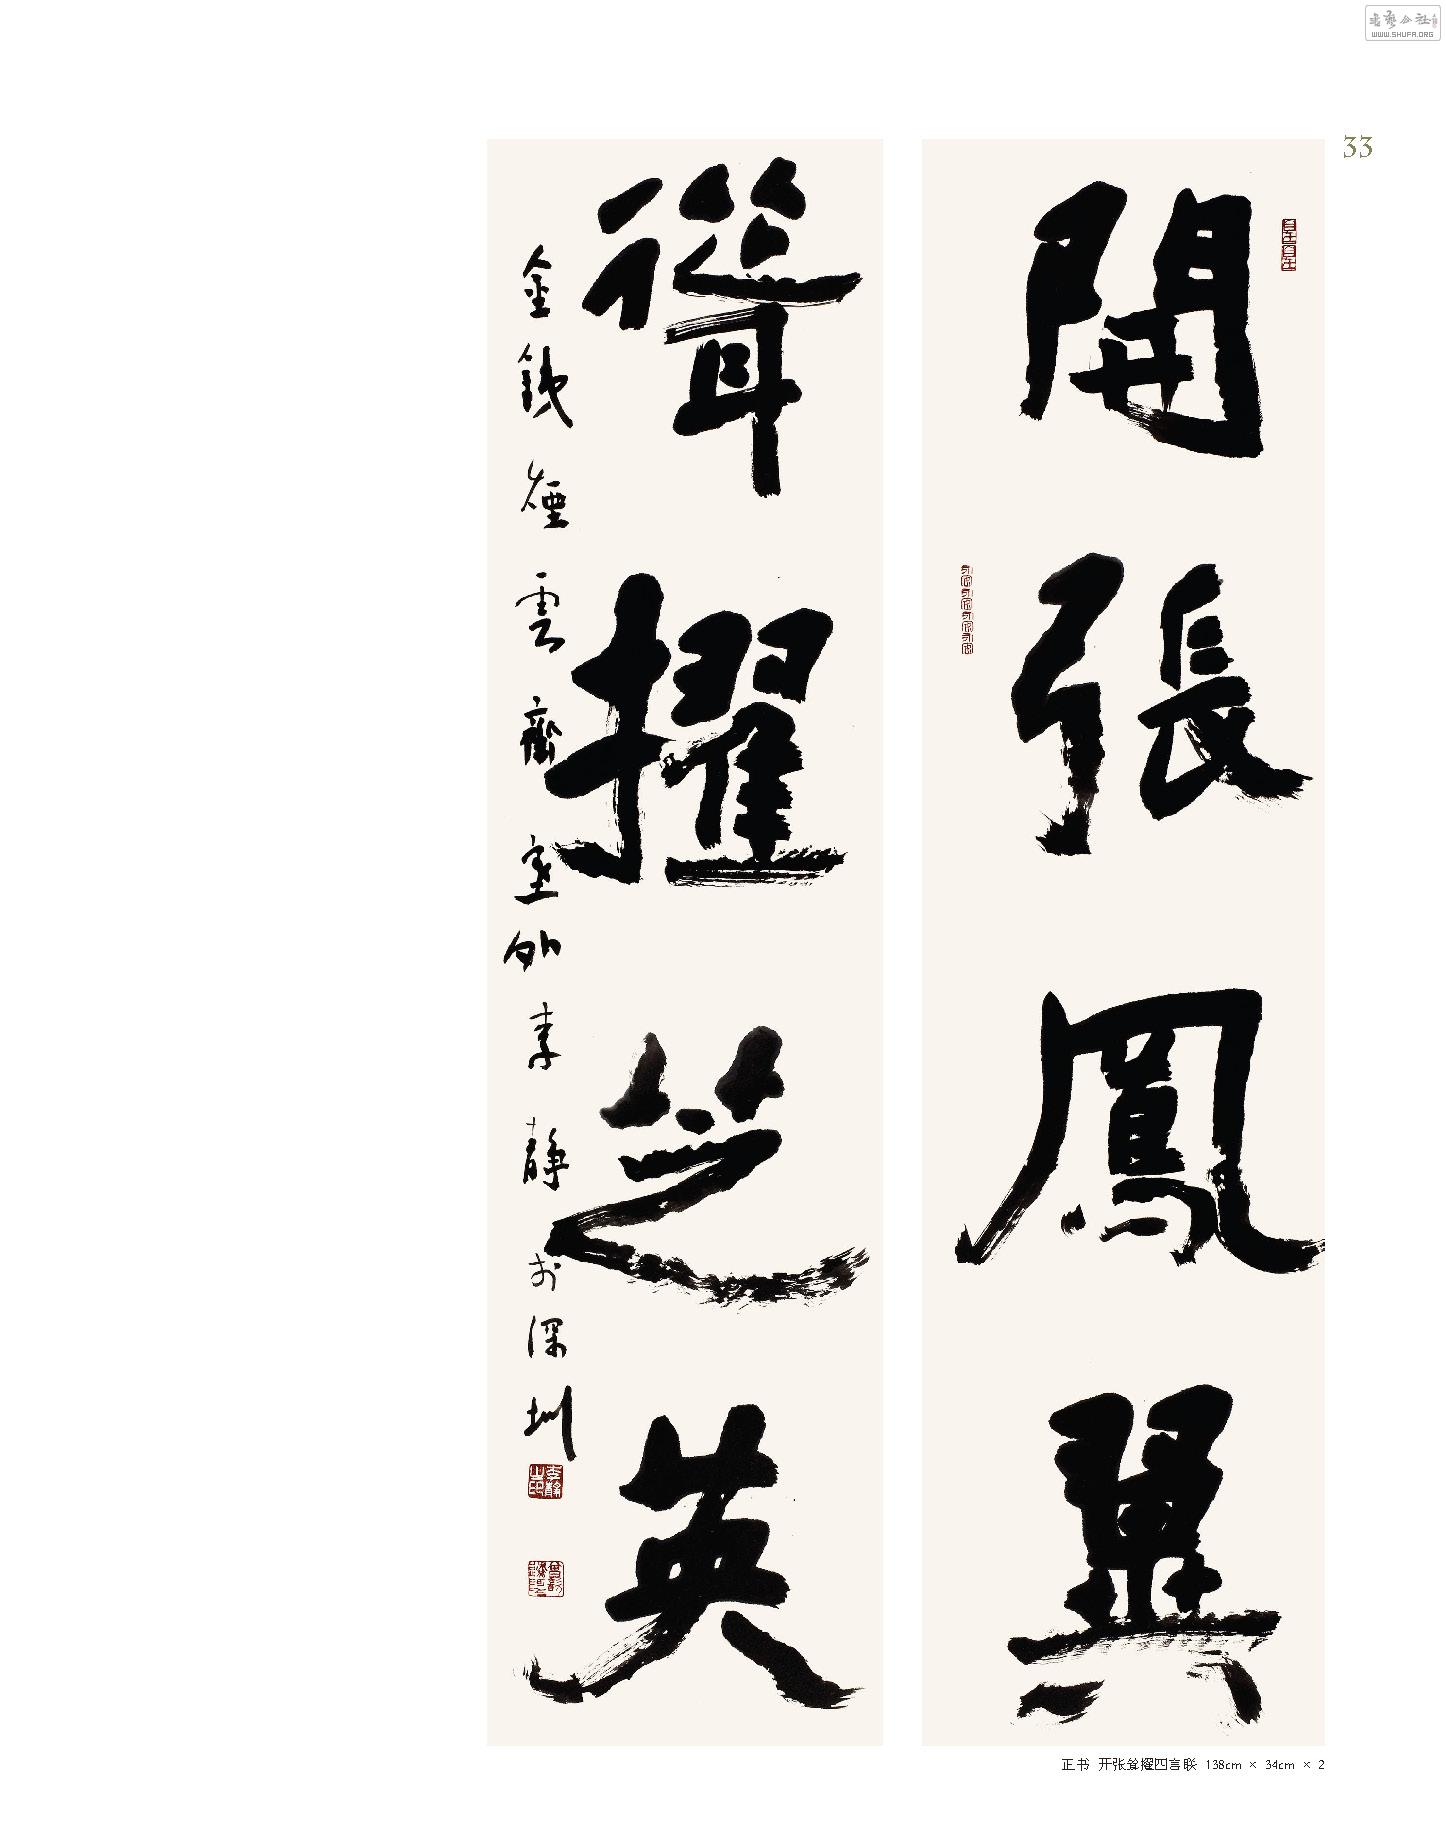 書藝公社
WWW.SHUFA.ORG
33
開張鳳翼
聳擢芝英
金錢煙雲齋室外 李靜於深圳
李靜之印
正书 开张耸擢四言联 138cm × 34cm × 2